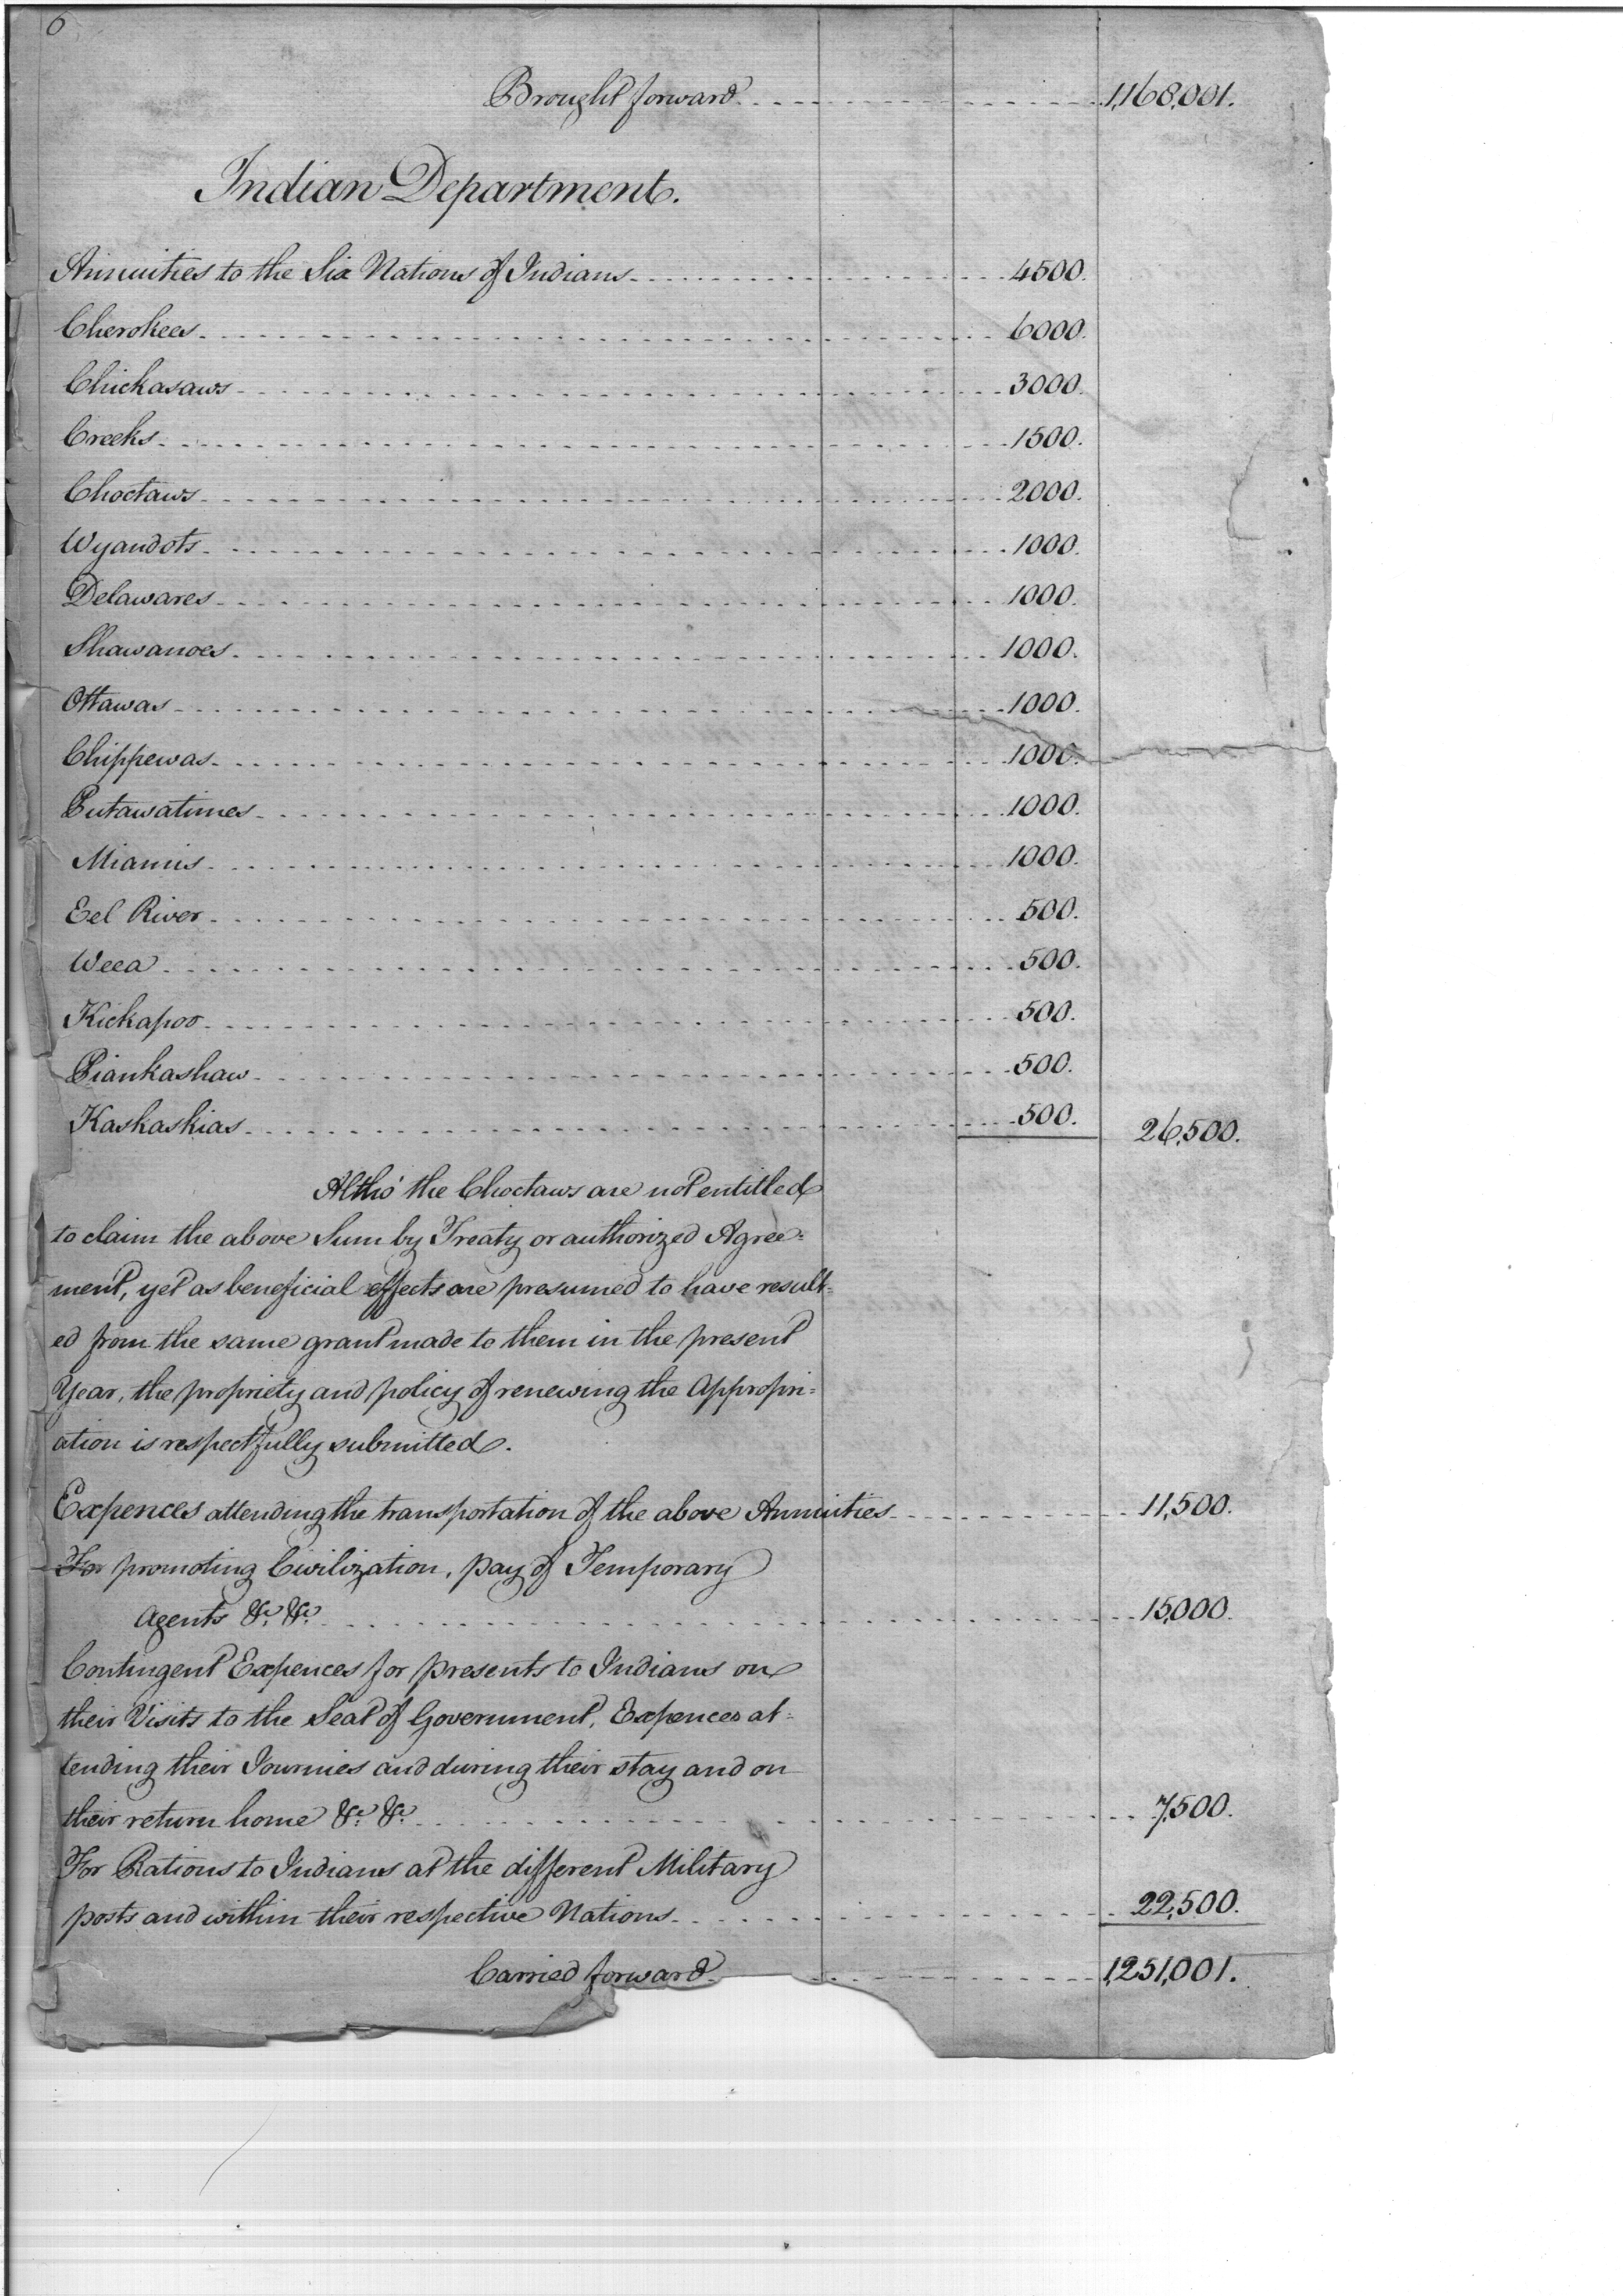 6
Brought forward 1,168,001.
Indian Department.
Annuities to the Six Nations of Indians 4500.
Cherokees 6000.
Chickasaws 3000.
Creeks 1500.
Choctaws 2000.
Wyandots 1000.
Delawares 1000.
Shawanoes 1000.
Ottawas 1000.
Chippewas 1000.
Putawatimes 1000.
Miamis 1000.
Eel River 500.
Weea 500.
Kickapoo 500.
Piankashaw 500.
Kaskaskias 500. 26,500.
Altho' the Choctaws are not entitled
to claim the above Sum by Treaty or authorized Agree=
ment, yet as beneficial effects are presumed to have result=
ed from the same grant made to them in the present
Year, the propriety and policy of renewing the Appropri=
ation is respectfully submitted.
Expences attending the transportation of the above Annuities 11,500.
For promoting Civilization, pay of Temporary
Agents &c. &c. 15,000.
Contingent Expences for presents to Indians on
their Visits to the Seat of Government, Expences at=
tending their Journies and during their stay and on
their return home &c. &c. 7,500.
For Rations to Indians at the different Military
posts and within their respective Nations 22,500.
Carried forward 1,251,001.